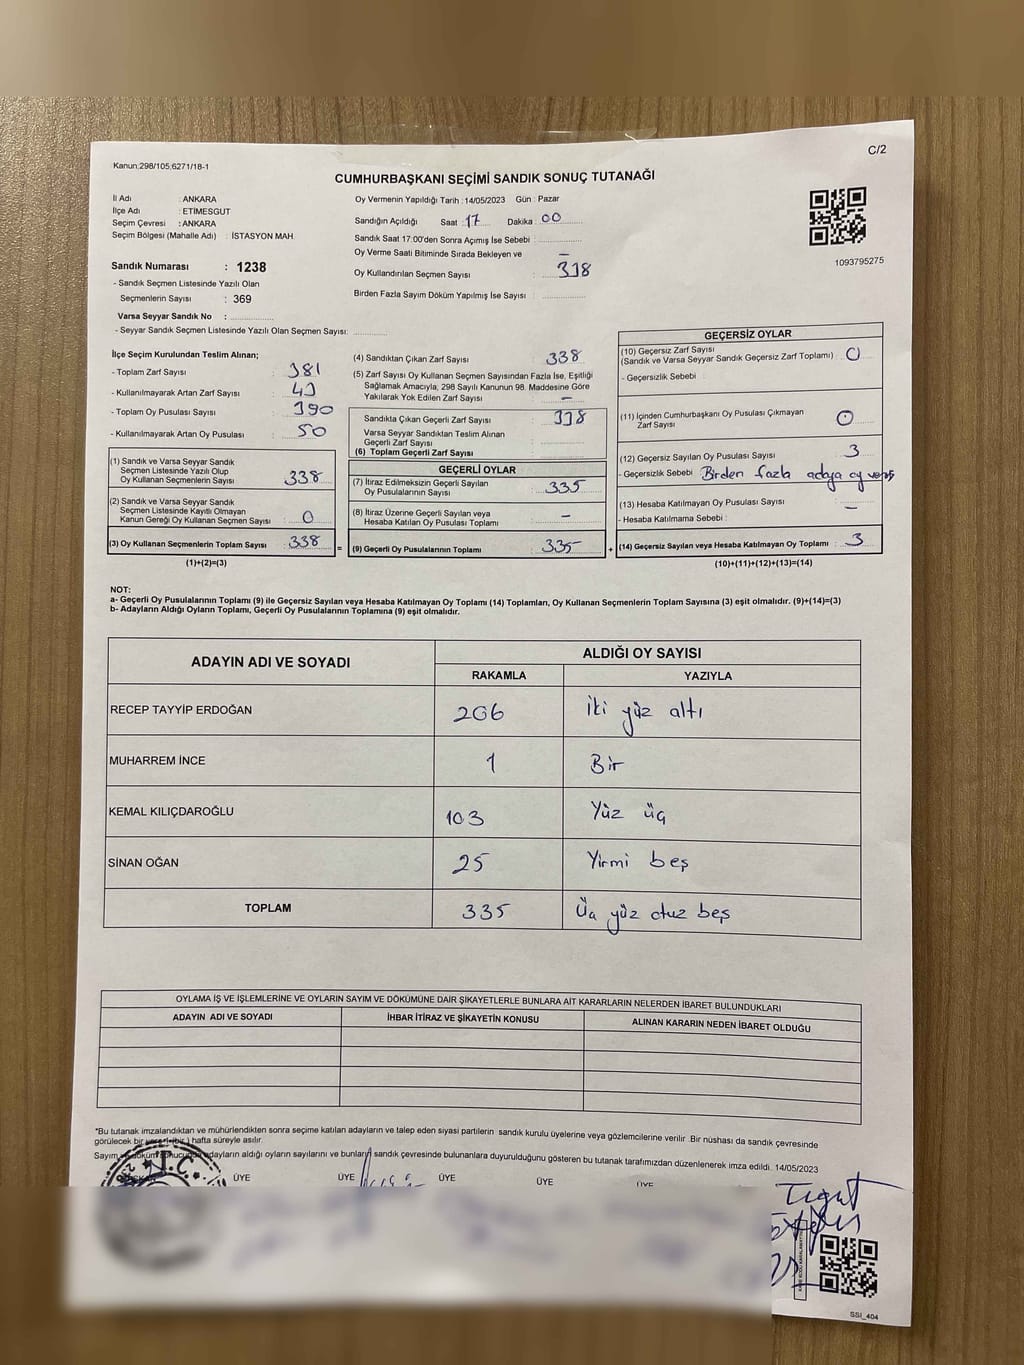 C/2
Kanun:298/105;6271/18-1
CUMHURBAŞKANI SEÇİMİ SANDIK SONUÇ TUTANAĞI
İl Adı : ANKARA
İlçe Adı : ETİMESGUT
Seçim Çevresi : ANKARA
Seçim Bölgesi (Mahalle Adı) : İSTASYON MAH.
Sandık Numarası : 1238
- Sandık Seçmen Listesinde Yazılı Olan
Seçmenlerin Sayısı : 369
Varsa Seyyar Sandık No :
- Seyyar Sandık Seçmen Listesinde Yazılı Olan Seçmen Sayısı:
Oy Vermenin Yapıldığı Tarih : 14/05/2023 Gün : Pazar
Sandığın Açıldığı Saat : 17 Dakika : 00
Sandık Saat 17:00'den Sonra Açımış İse Sebebi :
Oy Verme Saati Bitiminde Sırada Bekleyen ve –
Oy Kullandırılan Seçmen Sayısı : 338
Birden Fazla Sayım Döküm Yapılmış İse Sayısı :
1093795275
İlçe Seçim Kurulundan Teslim Alınan;
- Toplam Zarf Sayısı : 381
- Kullanılmayarak Artan Zarf Sayısı : 43
- Toplam Oy Pusulası Sayısı : 390
- Kullanılmayarak Artan Oy Pusulası : 50
(1) Sandık ve Varsa Seyyar Sandık
Seçmen Listesinde Yazılı Olup
Oy Kullanan Seçmenlerin Sayısı : 338
(2) Sandık ve Varsa Seyyar Sandık
Seçmen Listesinde Kayıtlı Olmayan
Kanun Gereği Oy Kullanan Seçmen Sayısı : 0
(3) Oy Kullanan Seçmenlerin Toplam Sayısı : 338
(1)+(2)=(3)
(4) Sandıktan Çıkan Zarf Sayısı : 338
(5) Zarf Sayısı Oy Kullanan Seçmen Sayısından Fazla İse, Eşitliği
Sağlamak Amacıyla, 298 Sayılı Kanunun 98. Maddesine Göre
Yakılarak Yok Edilen Zarf Sayısı : –
Sandıkta Çıkan Geçerli Zarf Sayısı : 338
Varsa Seyyar Sandıktan Teslim Alınan
Geçerli Zarf Sayısı :
(6) Toplam Geçerli Zarf Sayısı :
GEÇERLİ OYLAR
(7) İtiraz Edilmeksizin Geçerli Sayılan
Oy Pusulalarının Sayısı : 335
(8) İtiraz Üzerine Geçerli Sayılan veya
Hesaba Katılan Oy Pusulası Toplamı : –
= (9) Geçerli Oy Pusulalarının Toplamı : 335
GEÇERSİZ OYLAR
(10) Geçersiz Zarf Sayısı
(Sandık ve Varsa Seyyar Sandık Geçersiz Zarf Toplamı) : 0
- Geçersizlik Sebebi :
(11) İçinden Cumhurbaşkanı Oy Pusulası Çıkmayan
Zarf Sayısı : 0
(12) Geçersiz Sayılan Oy Pusulası Sayısı : 3
- Geçersizlik Sebebi : Birden fazla adaya oy
(13) Hesaba Katılmayan Oy Pusulası Sayısı : –
- Hesaba Katılmama Sebebi :
+ (14) Geçersiz Sayılan veya Hesaba Katılmayan Oy Toplamı : 3
(10)+(11)+(12)+(13)=(14)
NOT:
a- Geçerli Oy Pusulalarının Toplamı (9) ile Geçersiz Sayılan veya Hesaba Katılmayan Oy Toplamı (14) Toplamları, Oy Kullanan Seçmenlerin Toplam Sayısına (3) eşit olmalıdır. (9)+(14)=(3)
b- Adayların Aldığı Oyların Toplamı, Geçerli Oy Pusulalarının Toplamına (9) eşit olmalıdır.
ADAYIN ADI VE SOYADI
ALDIĞI OY SAYISI
RAKAMLA YAZIYLA
RECEP TAYYİP ERDOĞAN 206 İki yüz altı
MUHARREM İNCE 1 Bir
KEMAL KILIÇDAROĞLU 103 Yüz üç
SİNAN OĞAN 25 Yirmi beş
TOPLAM 335 Üç yüz otuz beş
OYLAMA İŞ VE İŞLEMLERİNE VE OYLARIN SAYIM VE DÖKÜMÜNE DAİR ŞİKAYETLERLE BUNLARA AİT KARARLARIN NELERDEN İBARET BULUNDUKLARI
ADAYIN ADI VE SOYADI İHBAR İTİRAZ VE ŞİKAYETİN KONUSU ALINAN KARARIN NEDEN İBARET OLDUĞU
*Bu tutanak imzalandıktan ve mühürlendikten sonra seçime katılan adayların ve talep eden siyasi partilerin sandık kurulu üyelerine veya gözlemcilerine verilir. Bir nüshası da sandık çevresinde
görülecek bir yere 1 (bir) hafta süreyle asılır.
Sayım döküm sonucunda adayların aldığı oyların sayılarını ve bunların sandık çevresinde bulunanlara duyurulduğunu gösteren bu tutanak tarafımızdan düzenlenerek imza edildi. 14/05/2023
ÜYE ÜYE ÜYE ÜYE ÜYE
T.C.
SSI_404